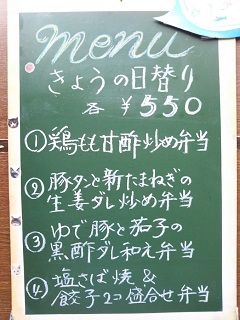 menu
きょうの日替り
各 ¥550
①鶏もも甘酢炒め弁当
②豚タンと新たまねぎの
生姜ダレ炒め弁当
③ゆで豚と茄子の
黒酢ダレ和え弁当
④塩さば焼&
餃子2コ盛合せ弁当